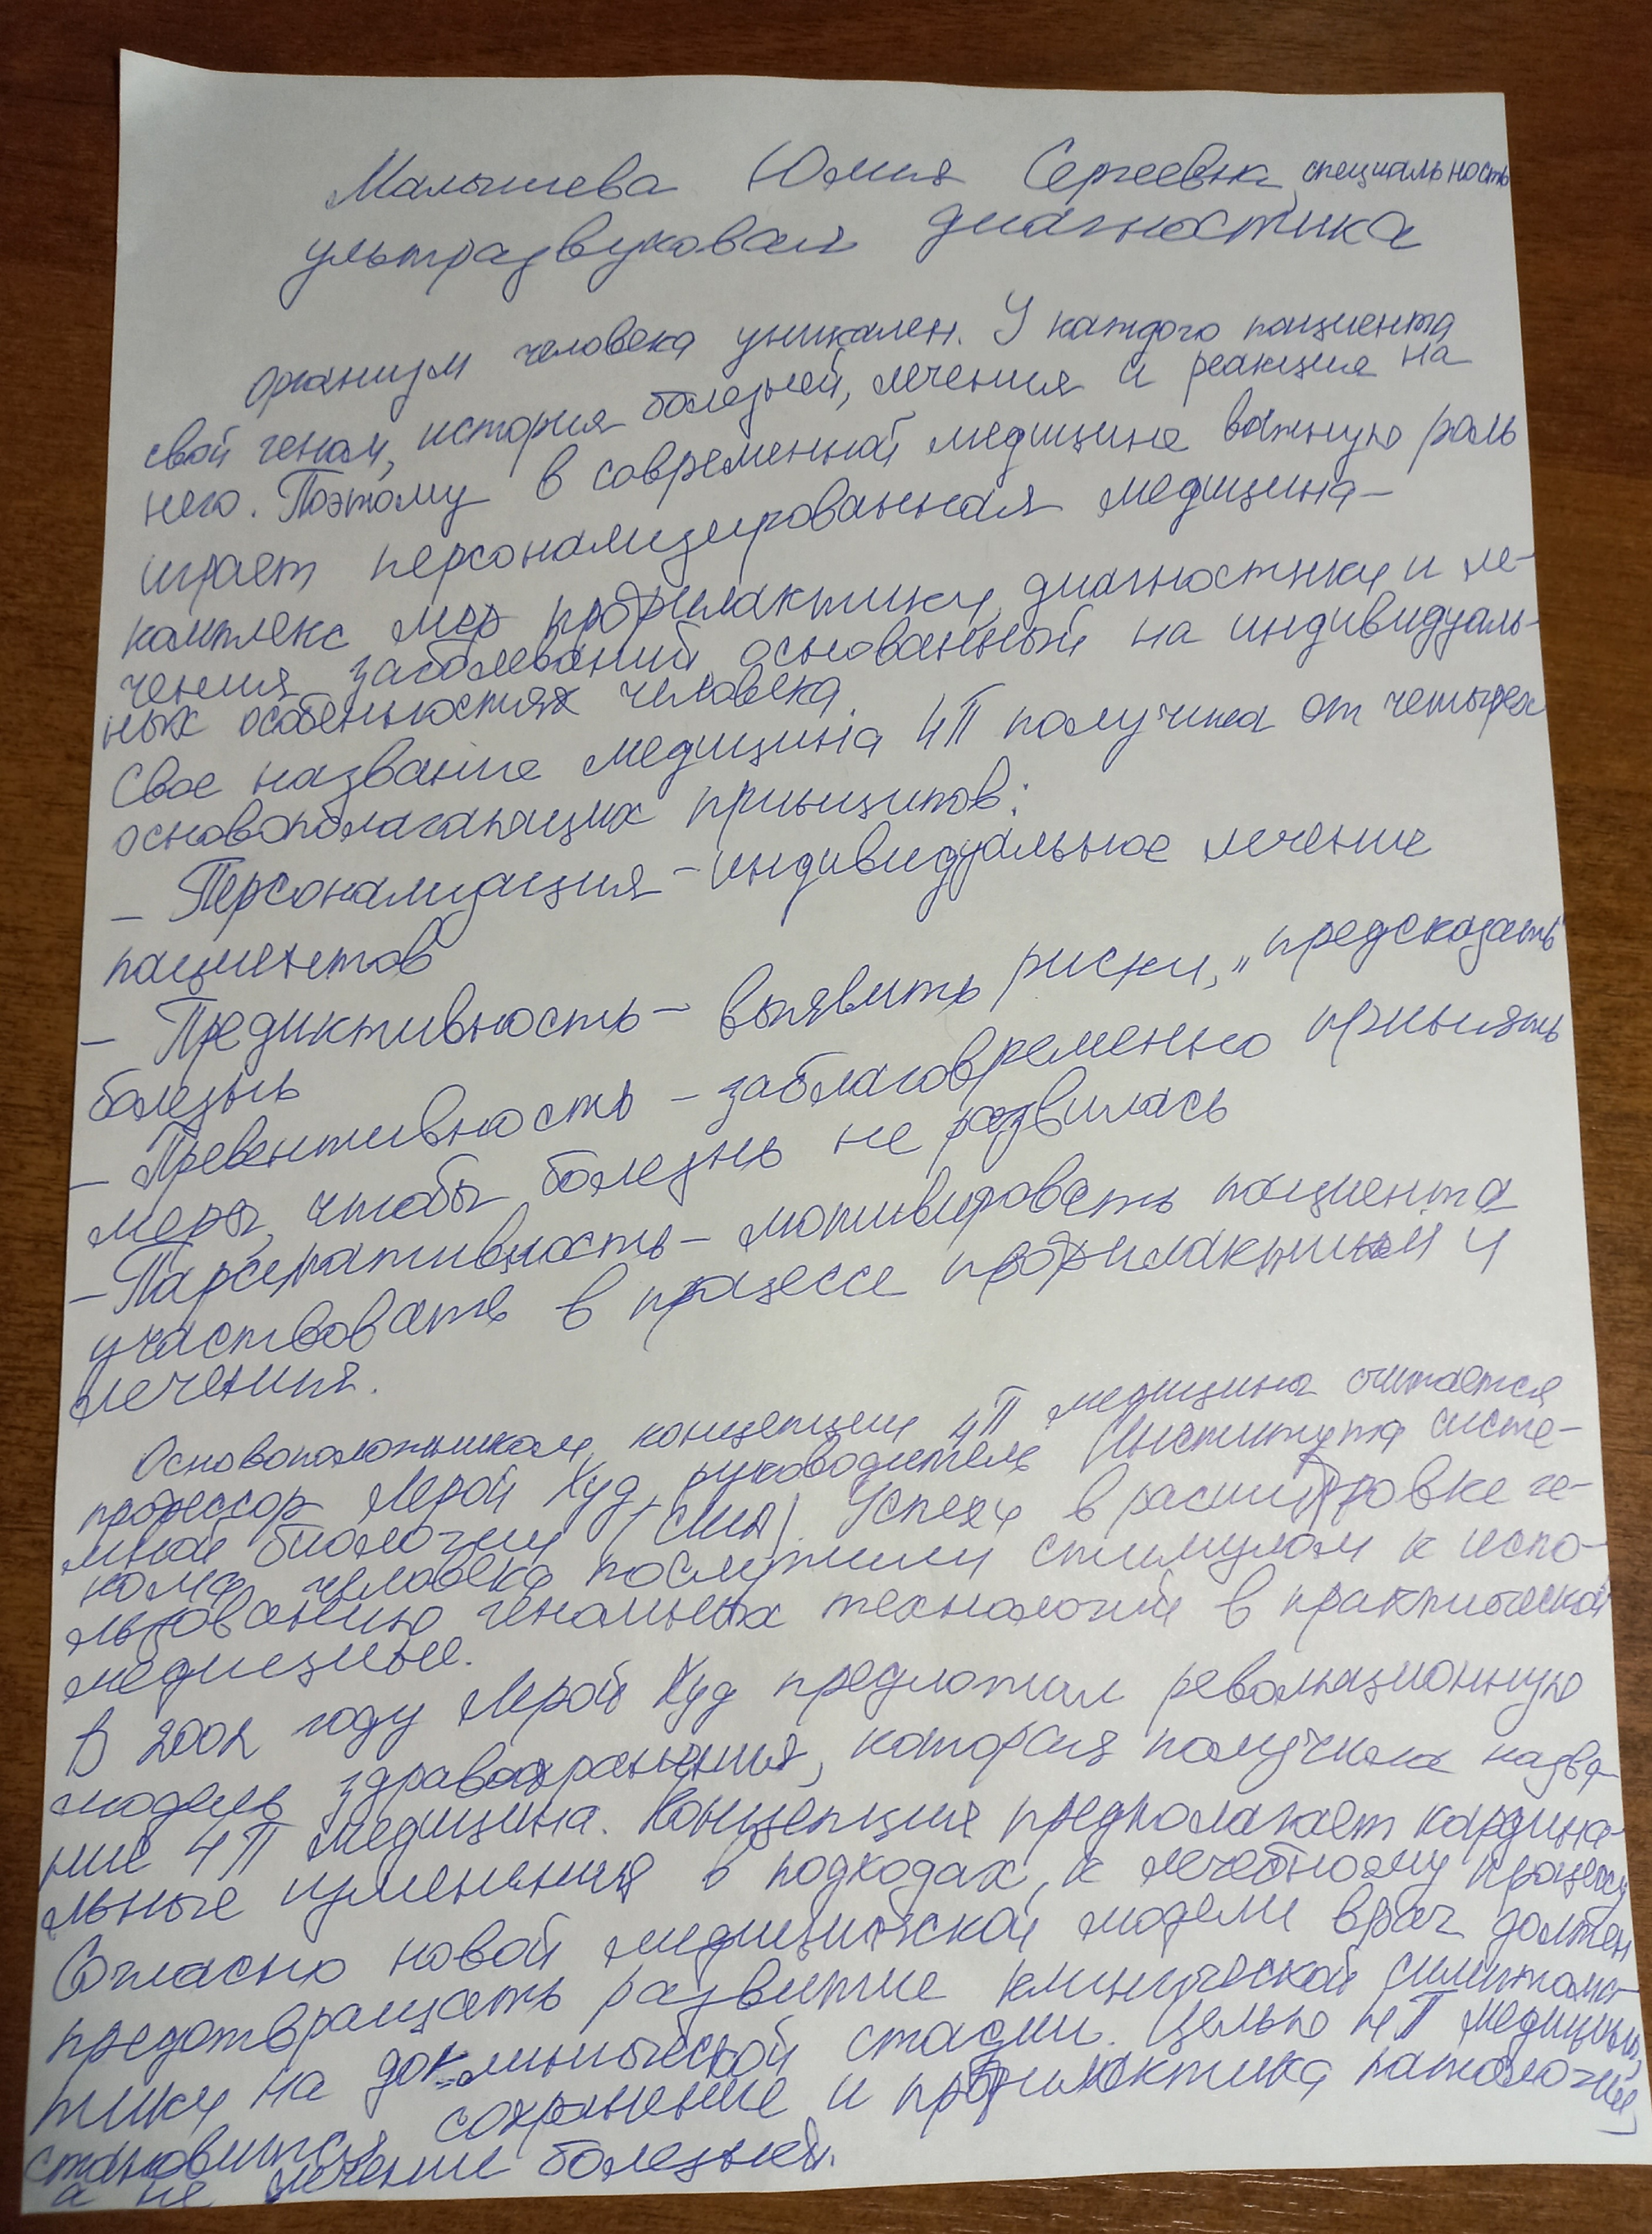 Малышева Юлия Сергеевна, специальность
ультразвуковая диагностика
Организм человека уникален. У каждого пациента
свой геном, история болезней, лечения и реакция на
него. Поэтому в современной медицине важную роль
играет персонализированная медицина –
комплекс мер профилактики, диагностики и ле-
чения заболеваний, основанный на индивидуаль-
ных особенностях человека.
Свое название медицина 4П получила от четырех
основополагающих принципов:
– Персонализация – индивидуальное лечение
пациентов
– Предиктивность – выявить риски, „предсказать"
болезнь
– Превентивность – заблаговременно принять
меры, чтобы болезнь не развилась
– Парсипативность – мотивировать пациента
участвовать в процессе профилактики и
лечения.
Основоположником концепции 4П медицина считается
профессор Лерой Худ, руководитель Института систе-
мной биологии (США). Успехи в расшифровке ге-
нома человека послужили стимулом к испо-
льзованию геномных технологий в практической
медицине.
В 2002 году Лерой Худ предложил революционную
модель здравоохранения, которая получила назва-
ние 4П медицина. Концепция предполагает кардина-
льные изменения в подходах к лечебному процессу
Согласно новой медицинской модели врач должен
предотвращать развитие клинической симптома-
тики на доклинической стадии. Целью 4П медицины
становится сохранение и профилактика патологий,
а не лечение болезней.